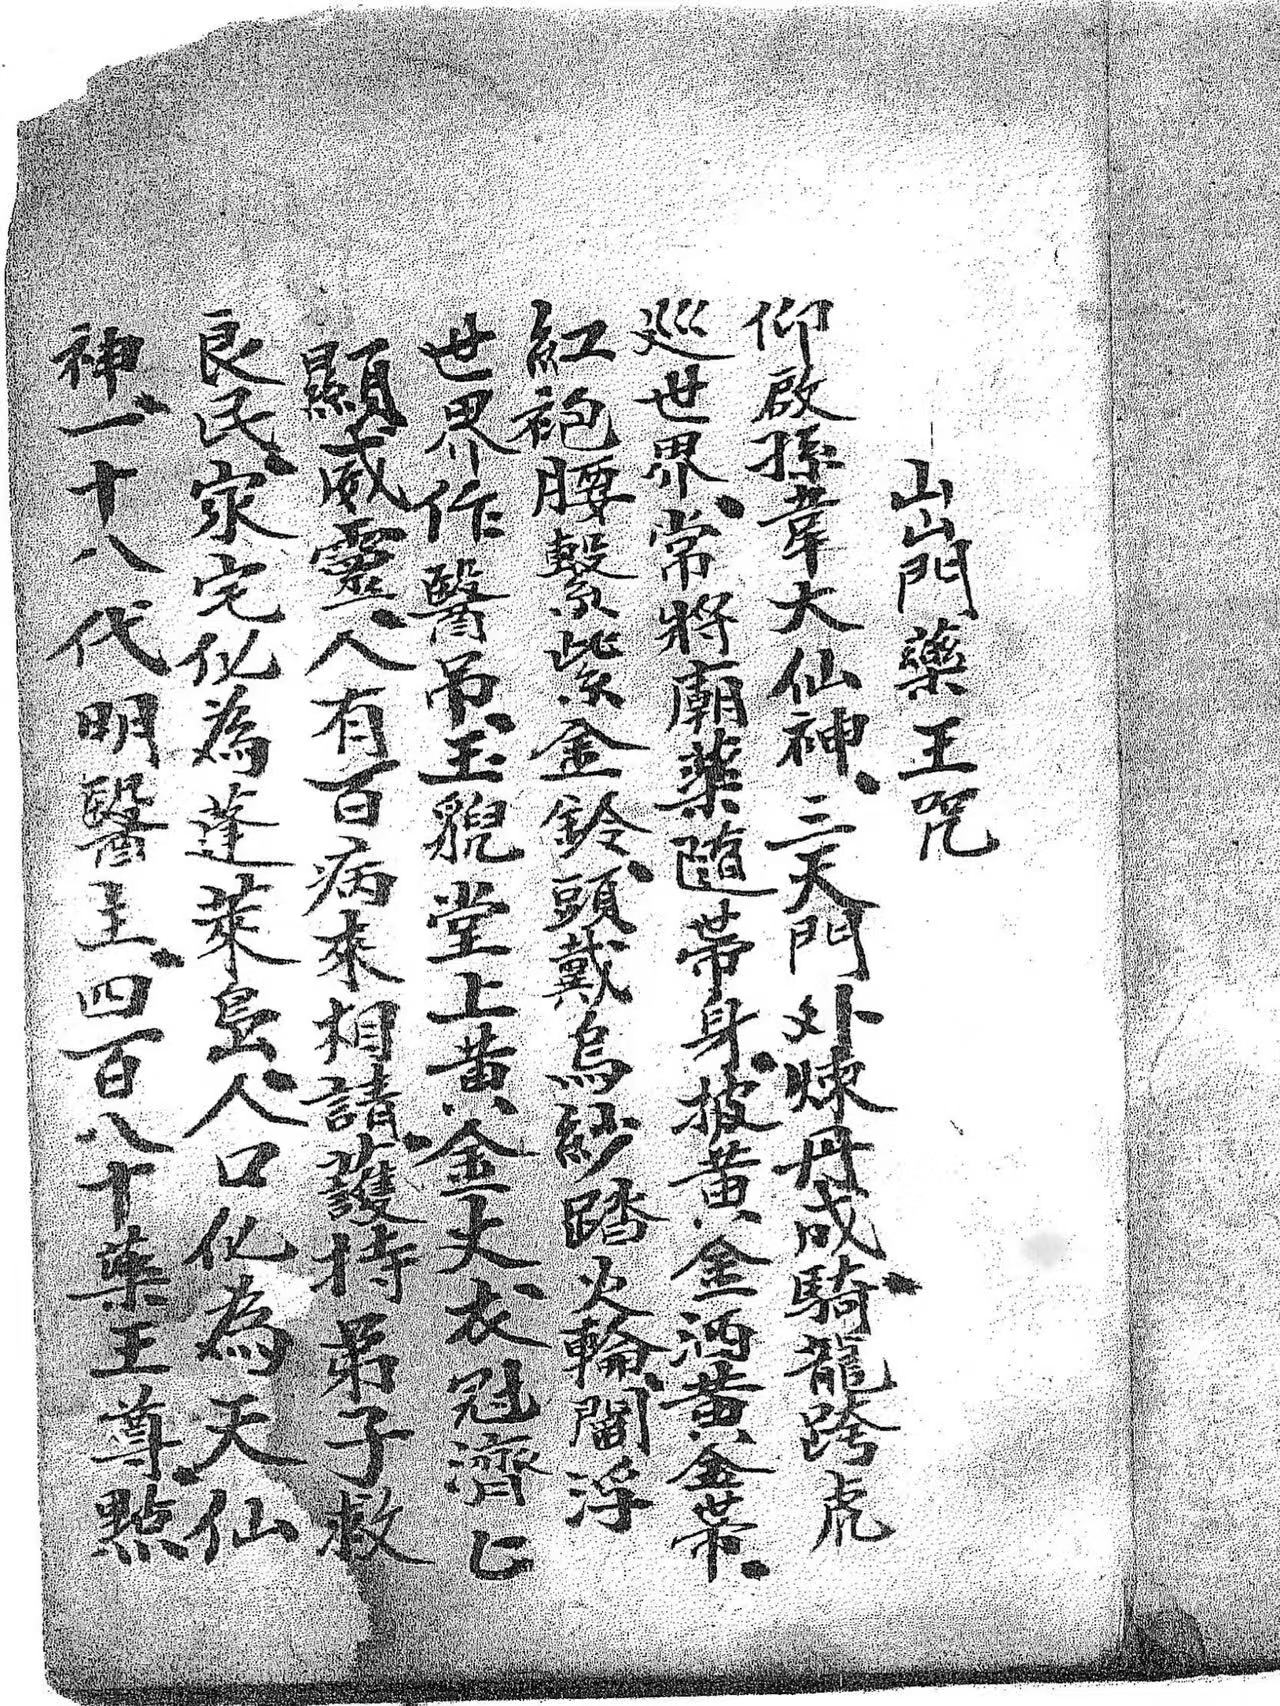 山山門藥王咒
仰啟孫韋大仙神、三天門外煉丹成、騎龍跨虎
巡世界、常將廟藥隨帶身、披黃金洒黃金帶、
紅袍腰繫紫金鈴、頭戴烏紗踏火輪、閻浮
世界作醫吊、玉貌堂上黃金丈、衣冠濟匕
顯威靈、人有百病來相請、護持弟子救
良民、家宅化為蓬萊島、人口化為天仙
神、一十八代明醫主、四百八十藥王尊、點